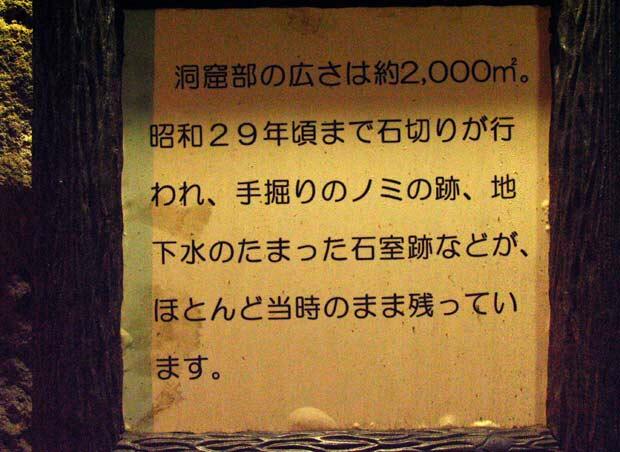 洞窟部の広さは約2,000㎡。
昭和２９年頃まで石切りが行
われ、手掘りのノミの跡、地
下水のたまった石室跡などが、
ほとんど当時のまま残ってい
ます。